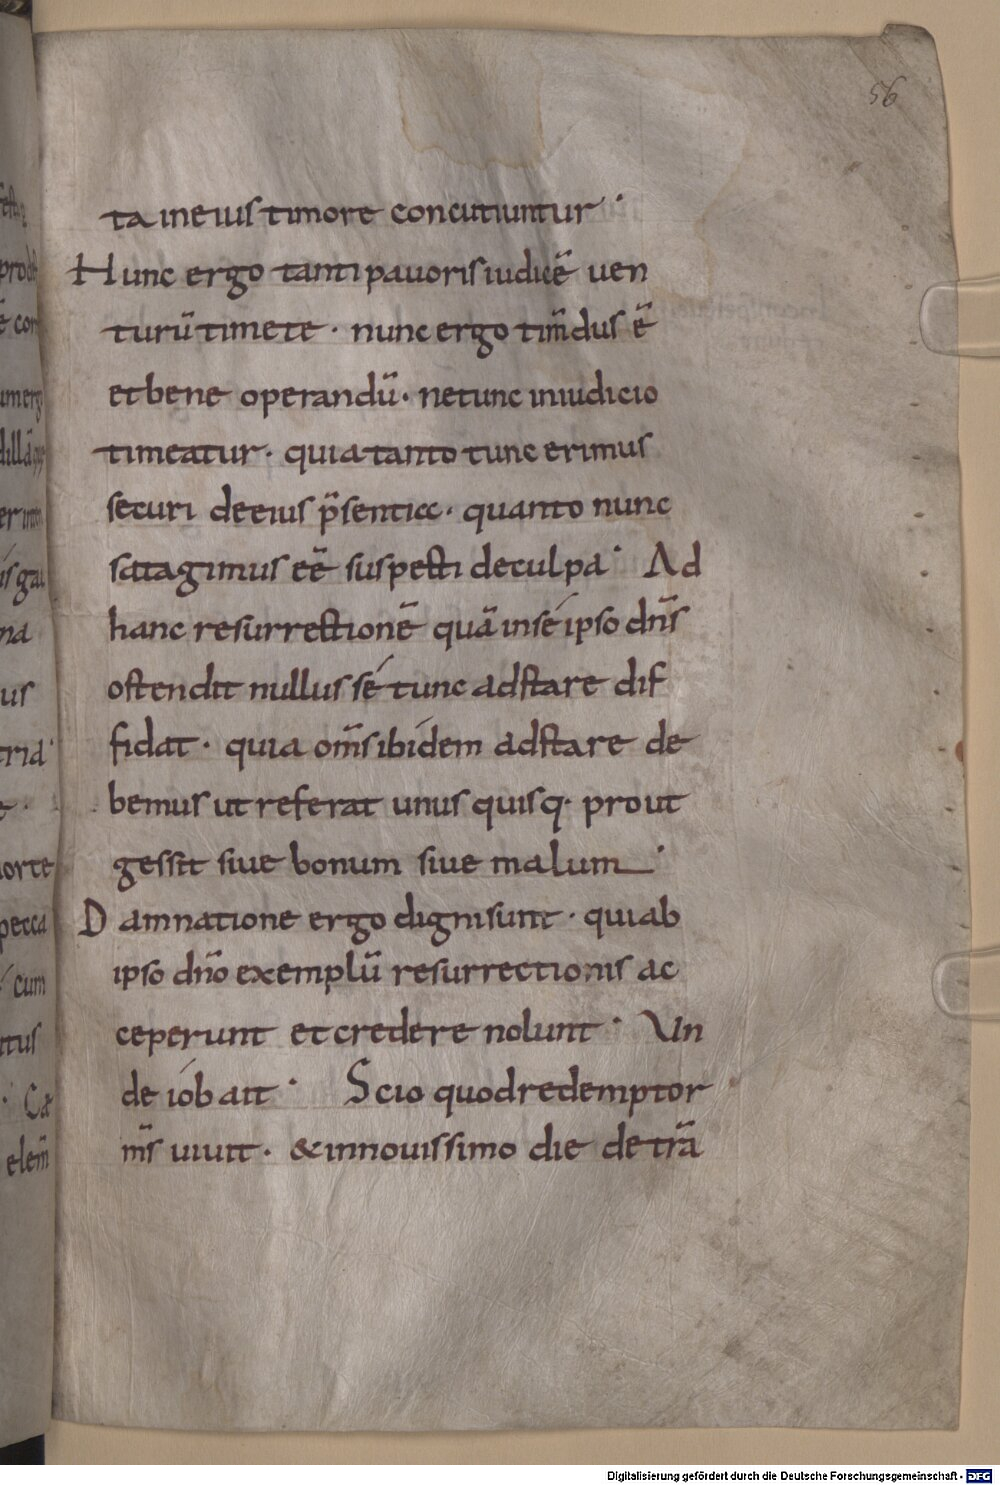 56
ta ineius timore concutiuntur ·
Hunc ergo tanti pauoris iudicē uen
turū timete · nunc ergo tim̄dus ē
et bene operandū · ne tunc in iudicio
timeatur · quia tanto tunc erimus
securi de eius p̄sentia · quanto nunc
satagimus eē suspecti de culpa · Ad
hanc resurrectionē quā in sé ipso dn̄s
ostendit nullus sé tunc adstare dif
fidat · quia om̄s ibidem adstare de
bemus ut referat unus quisq· prout
gessit siue bonum siue malum ·
Damnatione ergo digni sunt · qui ab
ipso dn̄o exemplū resurrectionis ac
ceperunt et credere nolunt · Vn
de iób ait · Scio quod redemptor
m̄s uiuit · & in nouissimo die de tr̄a
Digitalisierung gefördert durch die Deutsche Forschungsgemeinschaft - DFG